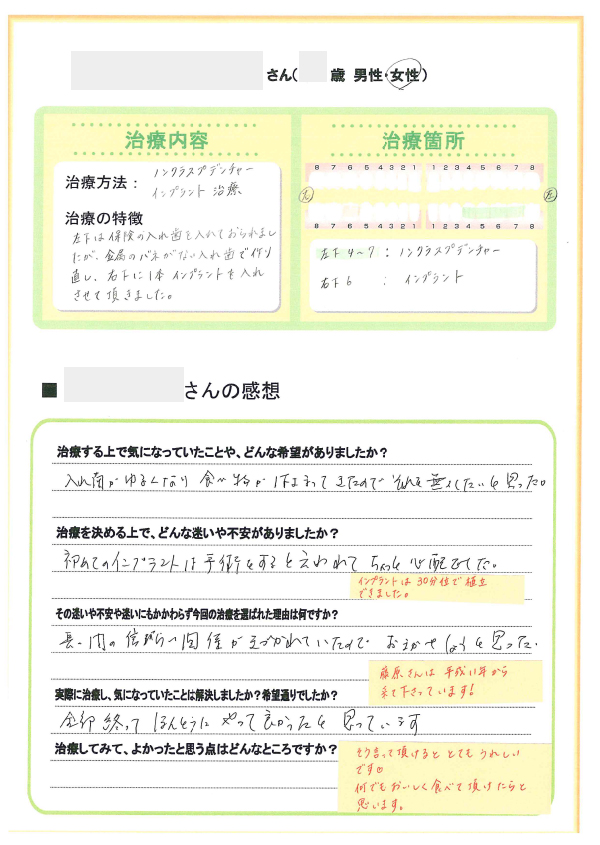 さん( 歳 男性・女性)
治療内容
治療方法： ノンクラスプデンチャー
インプラント治療
治療の特徴
左下は保険の入れ歯を入れておられまし
たが、金属のバネがない入れ歯で作り
直し、右下に1本インプラントを入れ
させて頂きました。
治療箇所
8 7 6 5 4 3 2 1 1 2 3 4 5 6 7 8
右 左
8 7 6 5 4 3 2 1 1 2 3 4 5 6 7 8
左下4〜7 : ノンクラスプデンチャー
右下6 : インプラント
■ さんの感想
治療する上で気になっていたことや、どんな希望がありましたか？
入れ歯がゆるくなり 食べ物が はさまってきたので それを無くしたいと思った。
治療を決める上で、どんな迷いや不安がありましたか？
初めてのインプラントは手術をすると云われて ちょっと心配でした。
インプラントは30分位で植立
できました。
その迷いや不安や迷いにもかかわらず今回の治療を選ばれた理由は何ですか？
長い間の信頼 関係がきづかれていたので おまかせしようと思った。
藤原さんは平成11年から
来て下さっています！
実際に治療し、気になっていたことは解決しましたか？希望通りでしたか？
全部終って ほんとうに やって良かったと 思っています
治療してみて、よかったと思う点はどんなところですか？
そう言って頂けると とてもうれしい
です
何でもおいしく食べて頂けたらと
思います。